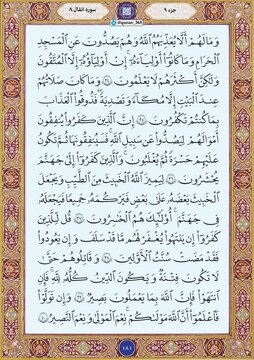 جزء ۹
@quran_365
سوره انفال ۸
وَمَا لَهُمْ أَلَّا يُعَذِّبَهُمُ ٱللَّهُ وَهُمْ يَصُدُّونَ عَنِ ٱلْمَسْجِدِ
ٱلْحَرَامِ وَمَا كَانُوٓا۟ أَوْلِيَآءَهُۥٓ إِنْ أَوْلِيَآؤُهُۥٓ إِلَّا ٱلْمُتَّقُونَ
وَلَٰكِنَّ أَكْثَرَهُمْ لَا يَعْلَمُونَ ﴿٣٤﴾ وَمَا كَانَ صَلَاتُهُمْ
عِندَ ٱلْبَيْتِ إِلَّا مُكَآءً وَتَصْدِيَةً فَذُوقُوا۟ ٱلْعَذَابَ
بِمَا كُنتُمْ تَكْفُرُونَ ﴿٣٥﴾ إِنَّ ٱلَّذِينَ كَفَرُوا۟ يُنفِقُونَ
أَمْوَٰلَهُمْ لِيَصُدُّوا۟ عَن سَبِيلِ ٱللَّهِ فَسَيُنفِقُونَهَا ثُمَّ تَكُونُ
عَلَيْهِمْ حَسْرَةً ثُمَّ يُغْلَبُونَ وَٱلَّذِينَ كَفَرُوٓا۟ إِلَىٰ جَهَنَّمَ
يُحْشَرُونَ ﴿٣٦﴾ لِيَمِيزَ ٱللَّهُ ٱلْخَبِيثَ مِنَ ٱلطَّيِّبِ وَيَجْعَلَ
ٱلْخَبِيثَ بَعْضَهُۥ عَلَىٰ بَعْضٍ فَيَرْكُمَهُۥ جَمِيعًا فَيَجْعَلَهُۥ
فِى جَهَنَّمَ أُو۟لَٰٓئِكَ هُمُ ٱلْخَٰسِرُونَ ﴿٣٧﴾ قُل لِّلَّذِينَ
كَفَرُوٓا۟ إِن يَنتَهُوا۟ يُغْفَرْ لَهُم مَّا قَدْ سَلَفَ وَإِن يَعُودُوا۟
فَقَدْ مَضَتْ سُنَّتُ ٱلْأَوَّلِينَ ﴿٣٨﴾ وَقَٰتِلُوهُمْ حَتَّىٰ
لَا تَكُونَ فِتْنَةٌ وَيَكُونَ ٱلدِّينُ كُلُّهُۥ لِلَّهِ فَإِنِ
ٱنتَهَوْا۟ فَإِنَّ ٱللَّهَ بِمَا يَعْمَلُونَ بَصِيرٌ ﴿٣٩﴾ وَإِن تَوَلَّوْا۟
فَٱعْلَمُوٓا۟ أَنَّ ٱللَّهَ مَوْلَىٰكُمْ نِعْمَ ٱلْمَوْلَىٰ وَنِعْمَ ٱلنَّصِيرُ ﴿٤٠﴾
١٨١